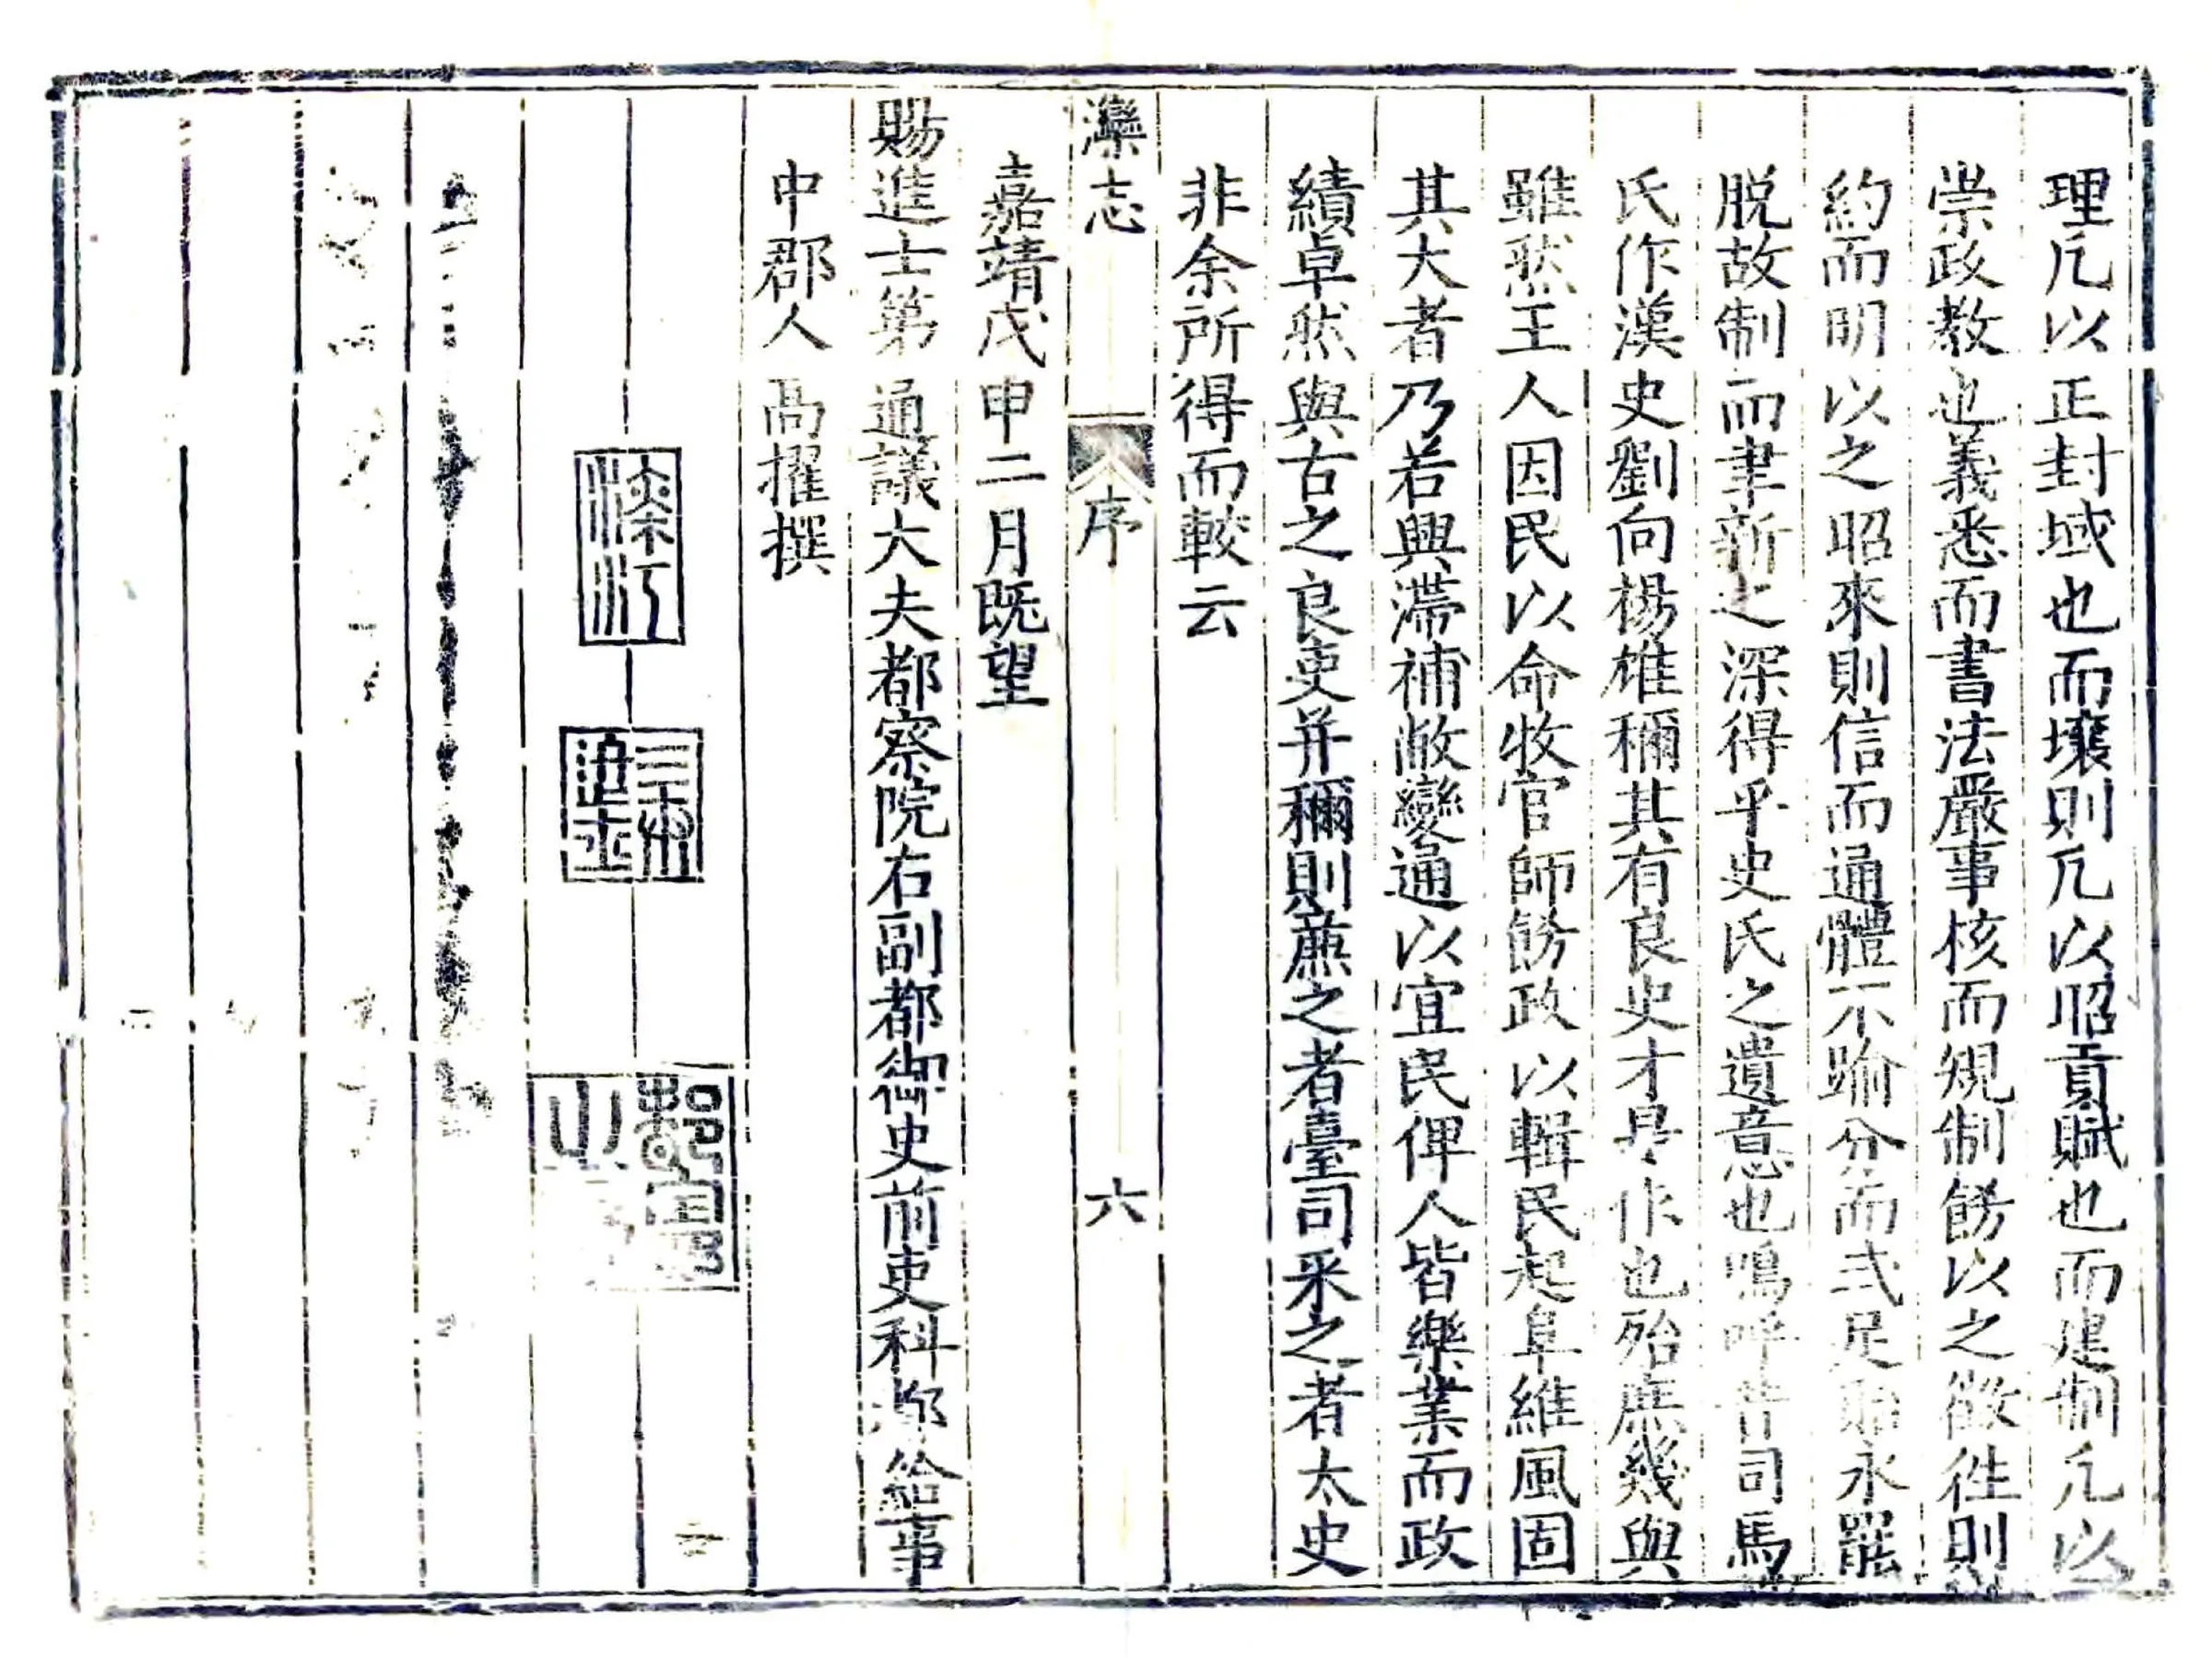 理凡以正封域也而壤則凡以昭貢賦也而建制凡以
崇政教也義悉而書法嚴事核而規制餝以之徵徃則
約而明以之昭來則信而通體不踰分而式足貽永罷
脱故制而聿新之深得乎史氏之遺意也嗚呼昔司馬
氏作漢史劉向楊雄稱其有良史才是作也殆庶幾與
雖然王人因民以命牧官師餝政以輯民起阜維風固
其大者乃若興滯補敝變通以宜民俾人皆樂業而政
績卓然與古之良吏并稱則薦之者臺司采之者太史
非余所得而較云
灤志
序
六
嘉靖戊申二月既望
賜進士第通議大夫都察院右副都御史前吏科都給事
中郡人高擢撰